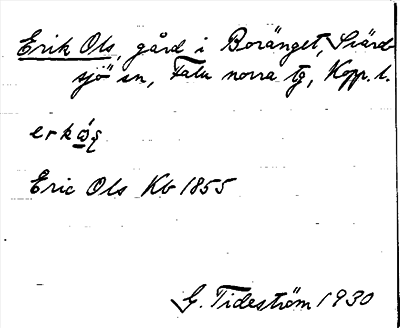 Erik Ols, gård i Boränget, Svärd-
sjö sn, Falu norra tg, Kopp. l.
Eric Ols Kb 1855
G. Tideström 1930